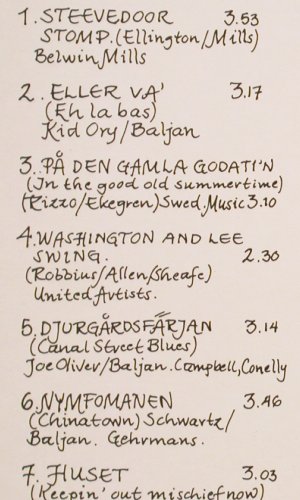 1. STEEVEDOOR 3.53
STOMP. (Ellington/Mills)
Belwin Mills
2. ELLER VA' 3.17
(Eh la bas)
Kid Ory/Baljan
3. PÅ DEN GAMLA GODATI'N
(In the good old summertime)
(Rizzo/Ekegren) Swed. Music 3.10
4. WASHINGTON AND LEE
SWING. 2.30
(Robbius/Allen/Sheafe)
United Avtists.
5. DJURGÅRDSFÄRJAN 3.14
(Canal Street Blues)
Joe Oliver/Baljan. Campbell, Conelly
6. NYMFOMANEN 3.46
(Chinatown) Schwartz/
Baljan. Gehrmans.
7. HUSET 3.03
(Keepin' out mischief now)